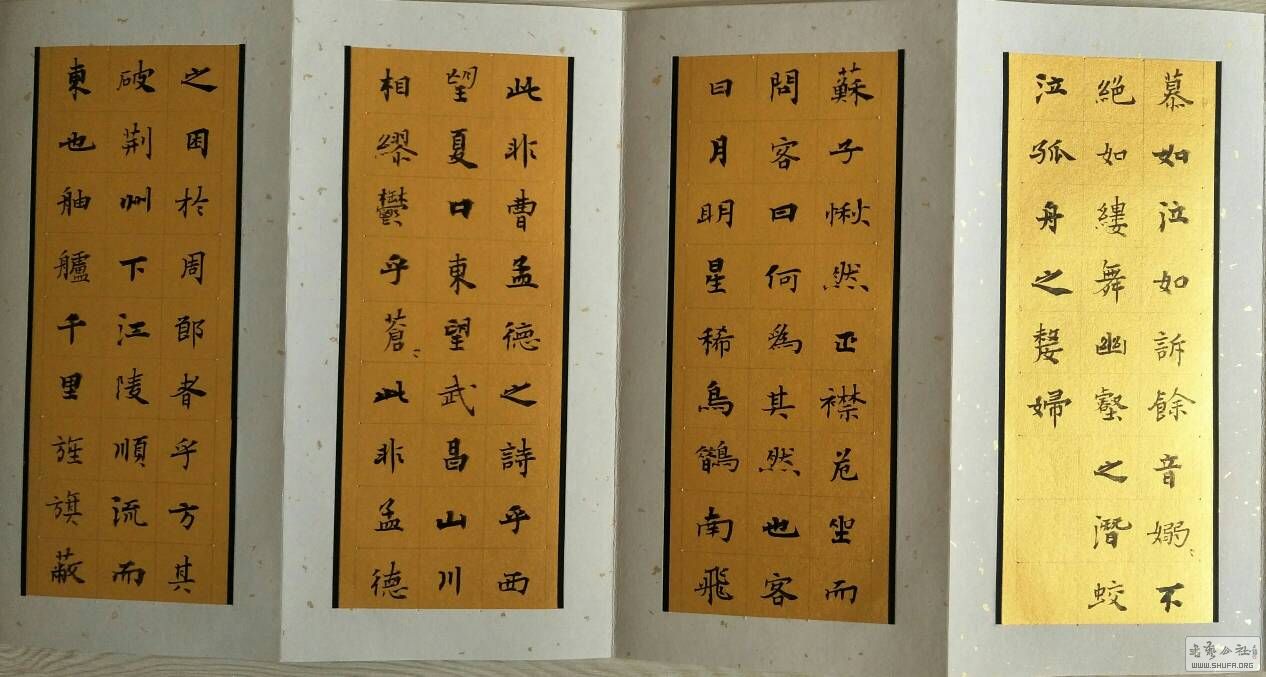 慕如泣如訴餘音嫋〻不
絕如縷舞幽壑之潛蛟
泣孤舟之嫠婦
蘇子愀然正襟危坐而
問客曰何爲其然也客
曰月明星稀烏鵲南飛
此非曹孟德之詩乎西
望夏口東望武昌山川
相繆鬱乎蒼〻此非孟德
之困於周郎者乎方其
破荆州下江陵順流而
東也舳艫千里旌旗蔽
书艺公社
WWW.SHUFA.ORG